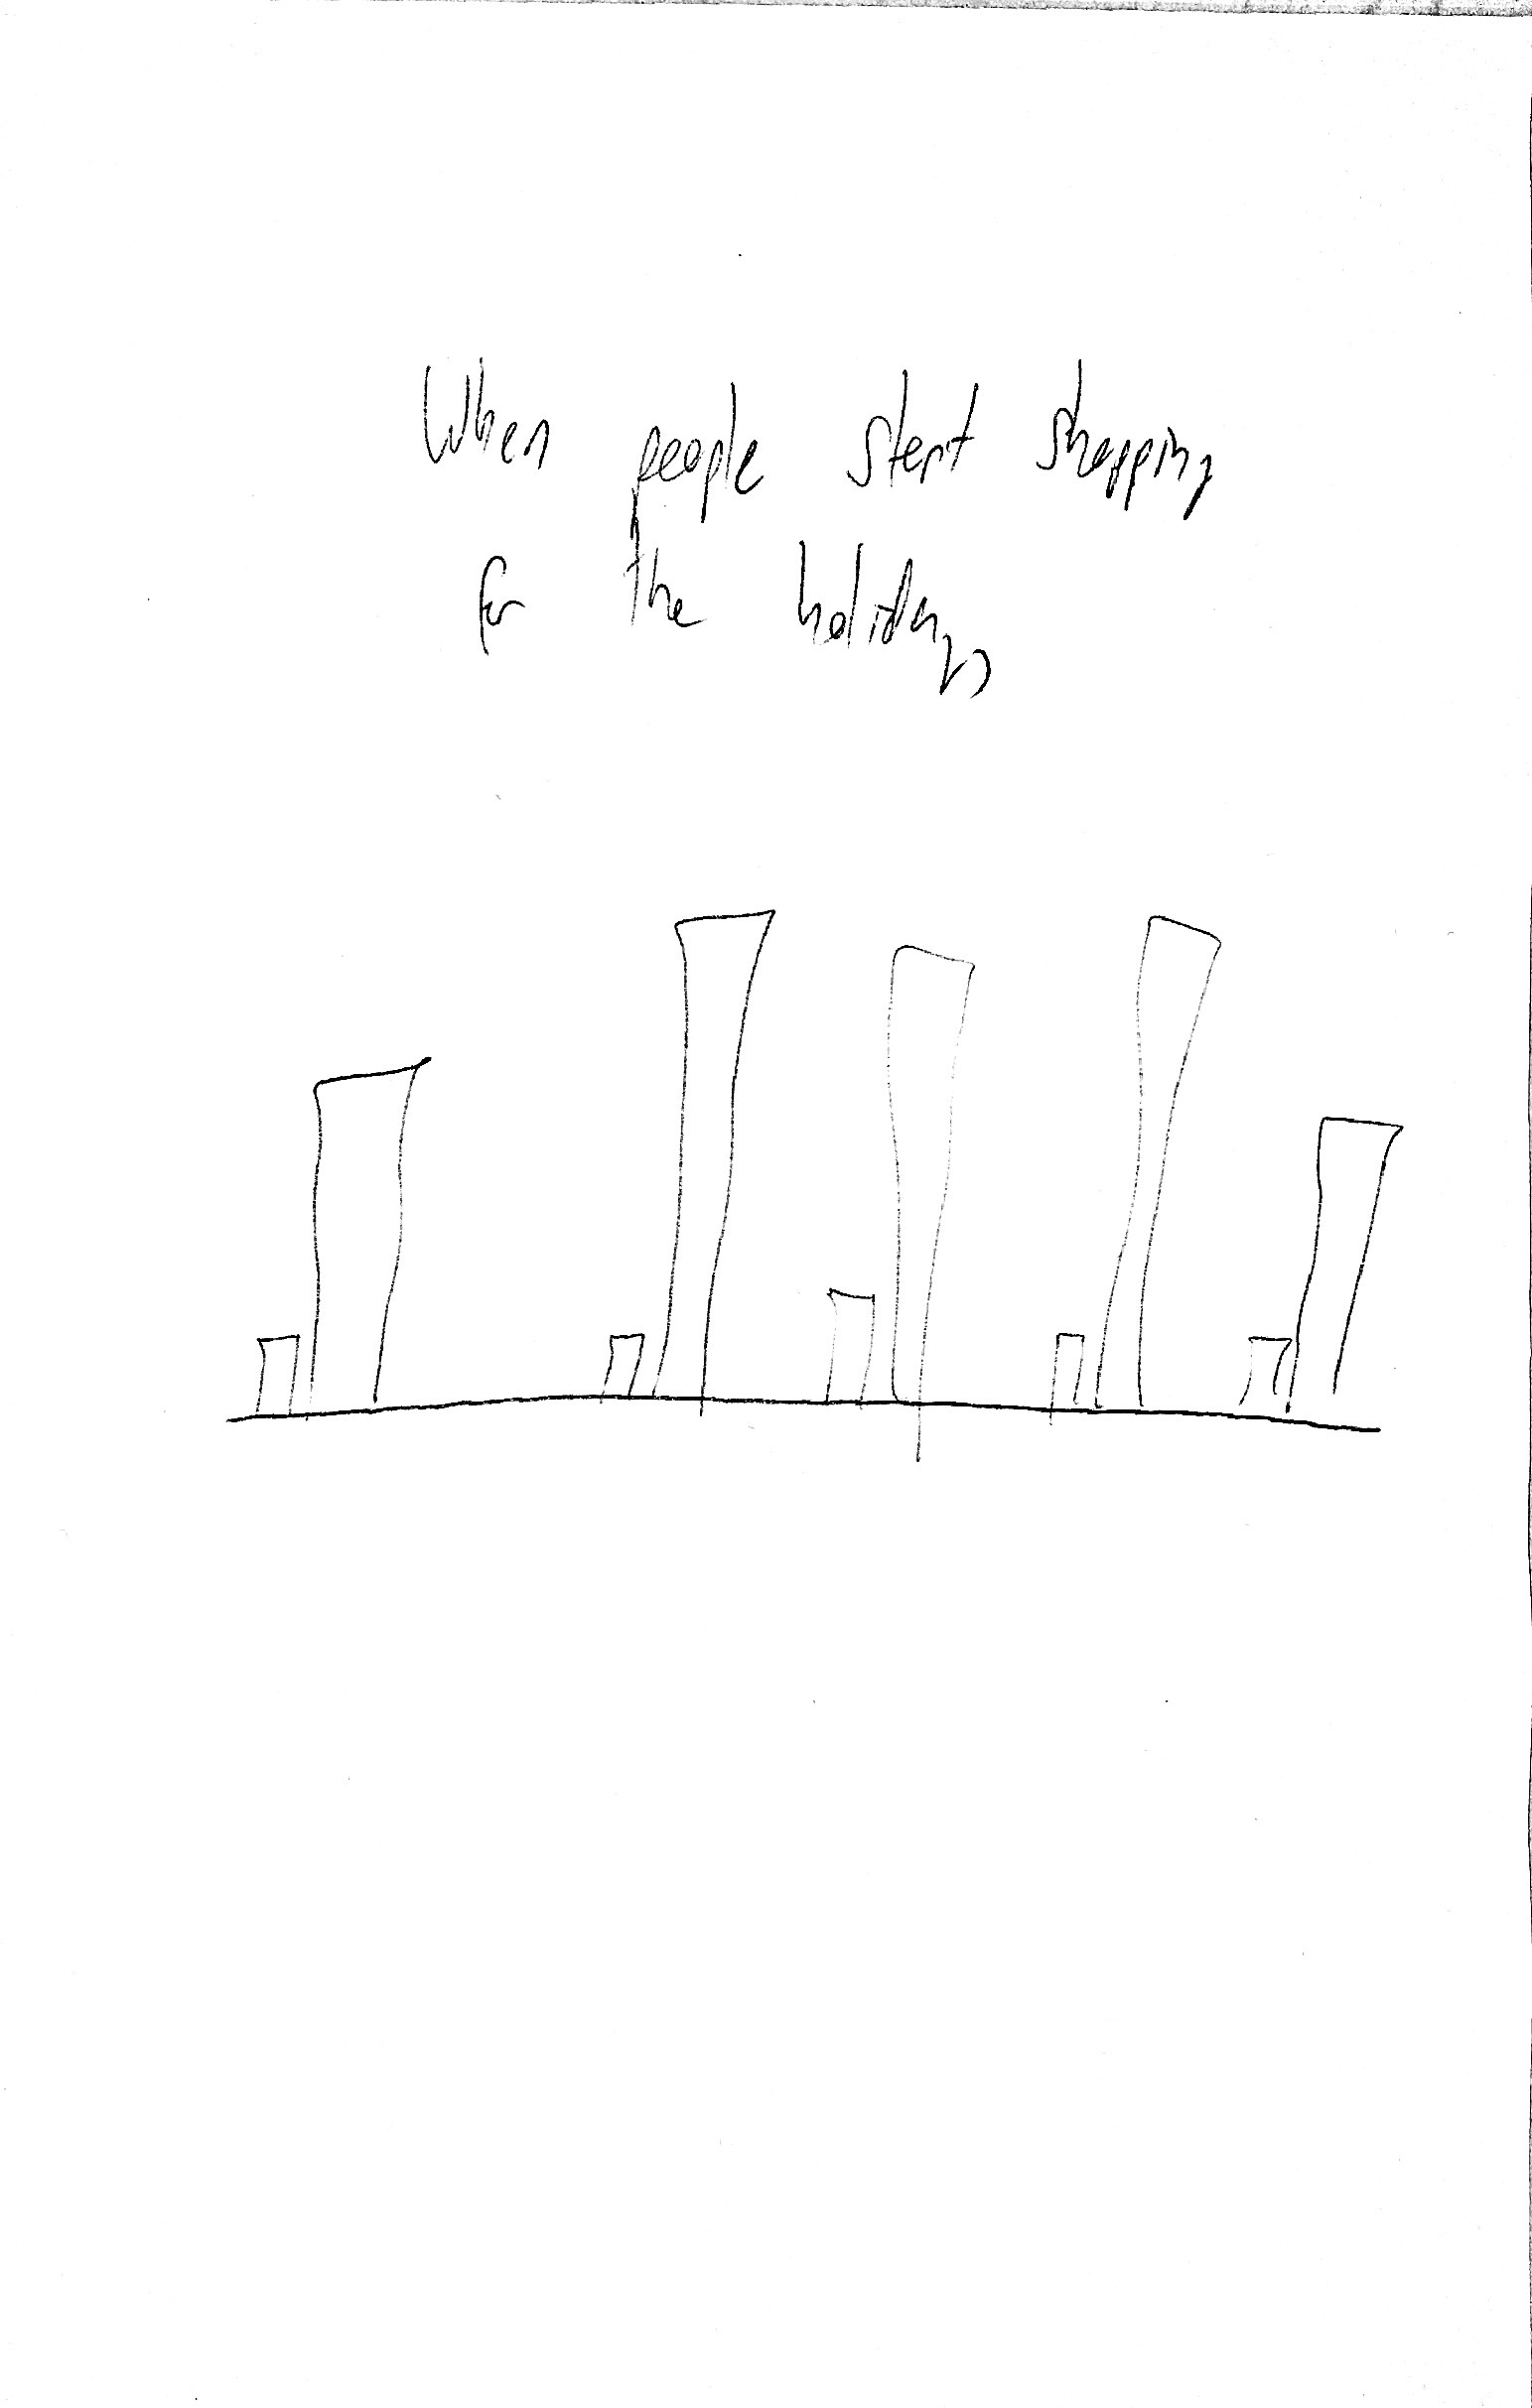 When people start shopping
for the holidays